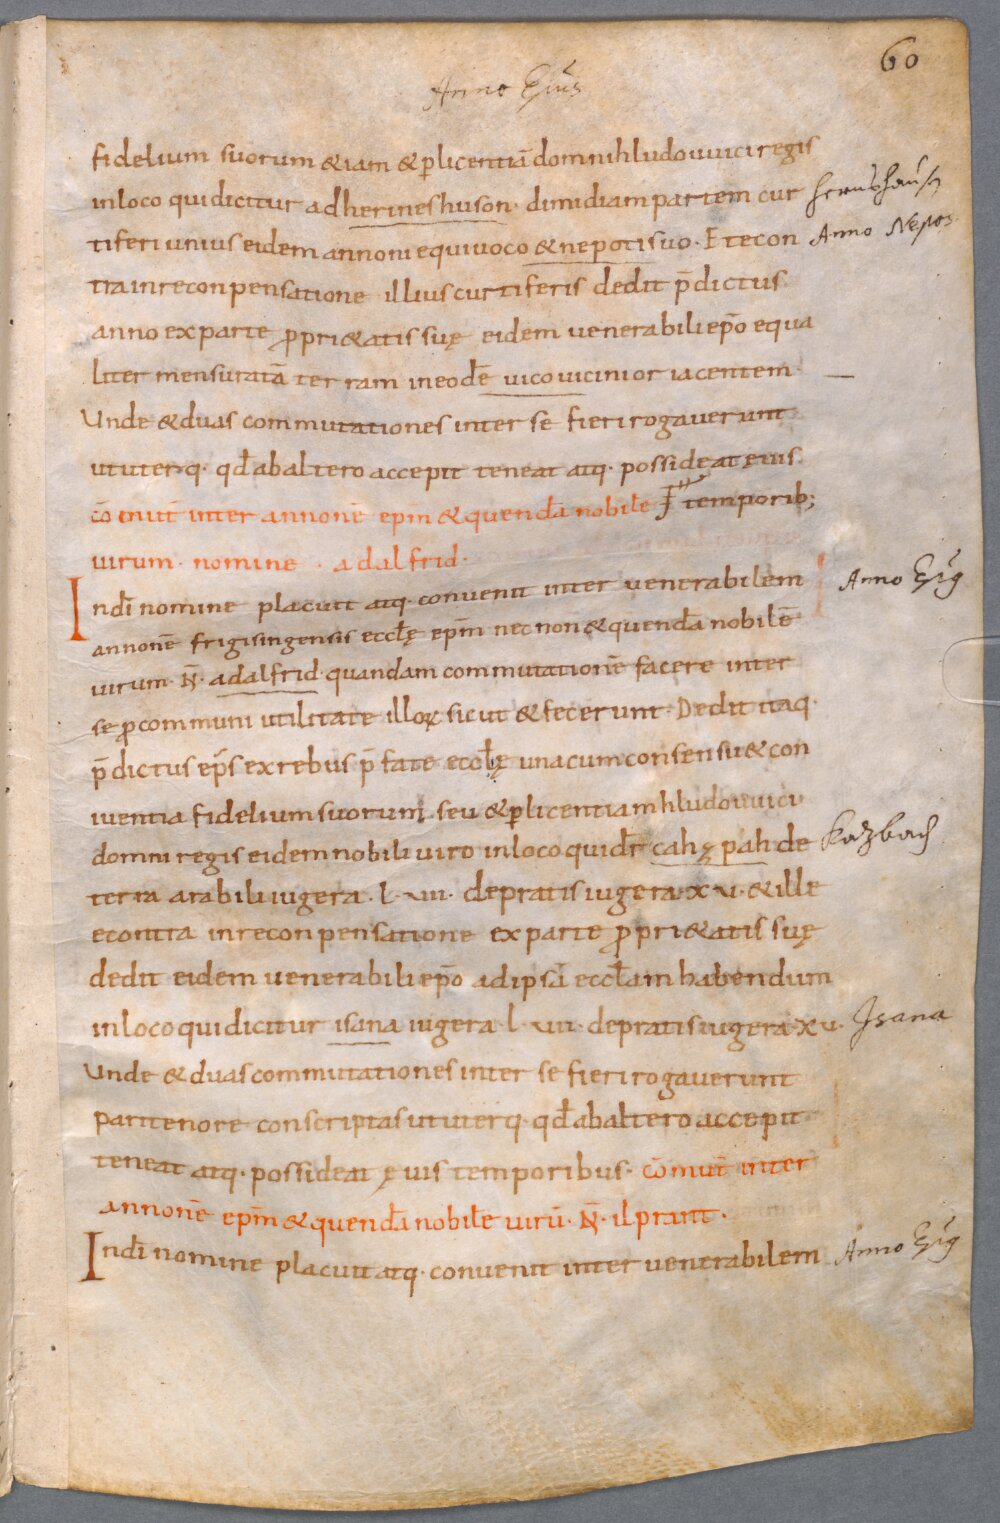 60
Anno Epūs
fidelium suorum &iam & p̲licentiā domnihludouuici regis
inloco quidicitur adherineshuson · dimidiam partem cur
herinshausn
tiferi unius eidem annoni equiuoco & nepoti suo · Et econ
Anno Nepos
tra inreconpensatione illius curtiferis dedit p̄dictus
anno ex parte ꝓpri&atis suę eidem uenerabili ep̄o equa
liter mensuratā terram in eodē uico uicinior iacentem ·
Unde & duas commutationes inter se fieri rogauerunt
ut uterq· qd̄ ab altero accepit teneat atq· possideat ęuis
temporib;
cōmut̄ inter annonē epm̄ & quendā nobilē
uirum · nomine · adalfrid ·
Indī nomine placuit atq· conuenit inter uenerabilem
Anno Epīs
annonē frigisingensis eccłę epm̄ nec non & quendā nobilē
uirum · N̄ · adalfrid · quandam commutationē facere inter
se ꝓcommuni utilitate illoꝝ sicut & fecerunt · Dedit itaq·
p̄dictus ep̄s ex rebus p̄fate eccłę una cum consensu & con
iuentia fidelium suorum · seu & p̲licentiam hludouuici
domni regis eidem nobili uiro inloco quidr̄ cahępah de
Kazbach
terra arabili iugera · l · viii · de pratis iugera · xv · & ille
econtra inreconpensatione ex parte ꝓpri&atis suę
dedit eidem uenerabili ep̄o adipsā eccłam habendum
inloco quidicitur isana iugera · l · viii · depratis iugera · xv ·
Isana
Unde & duas commutationes inter se fieri rogauerunt
pari tenore conscriptas ut uterq· qd̄ ab altero accepit
teneat atq· possideat ęuis temporibus · cōmut̄ inter
annonē epm̄ & quendā nobilē uirū · N̄ · ilprant ·
Indī nomine placuit atq· conuenit inter uenerabilem
Anno Epīs